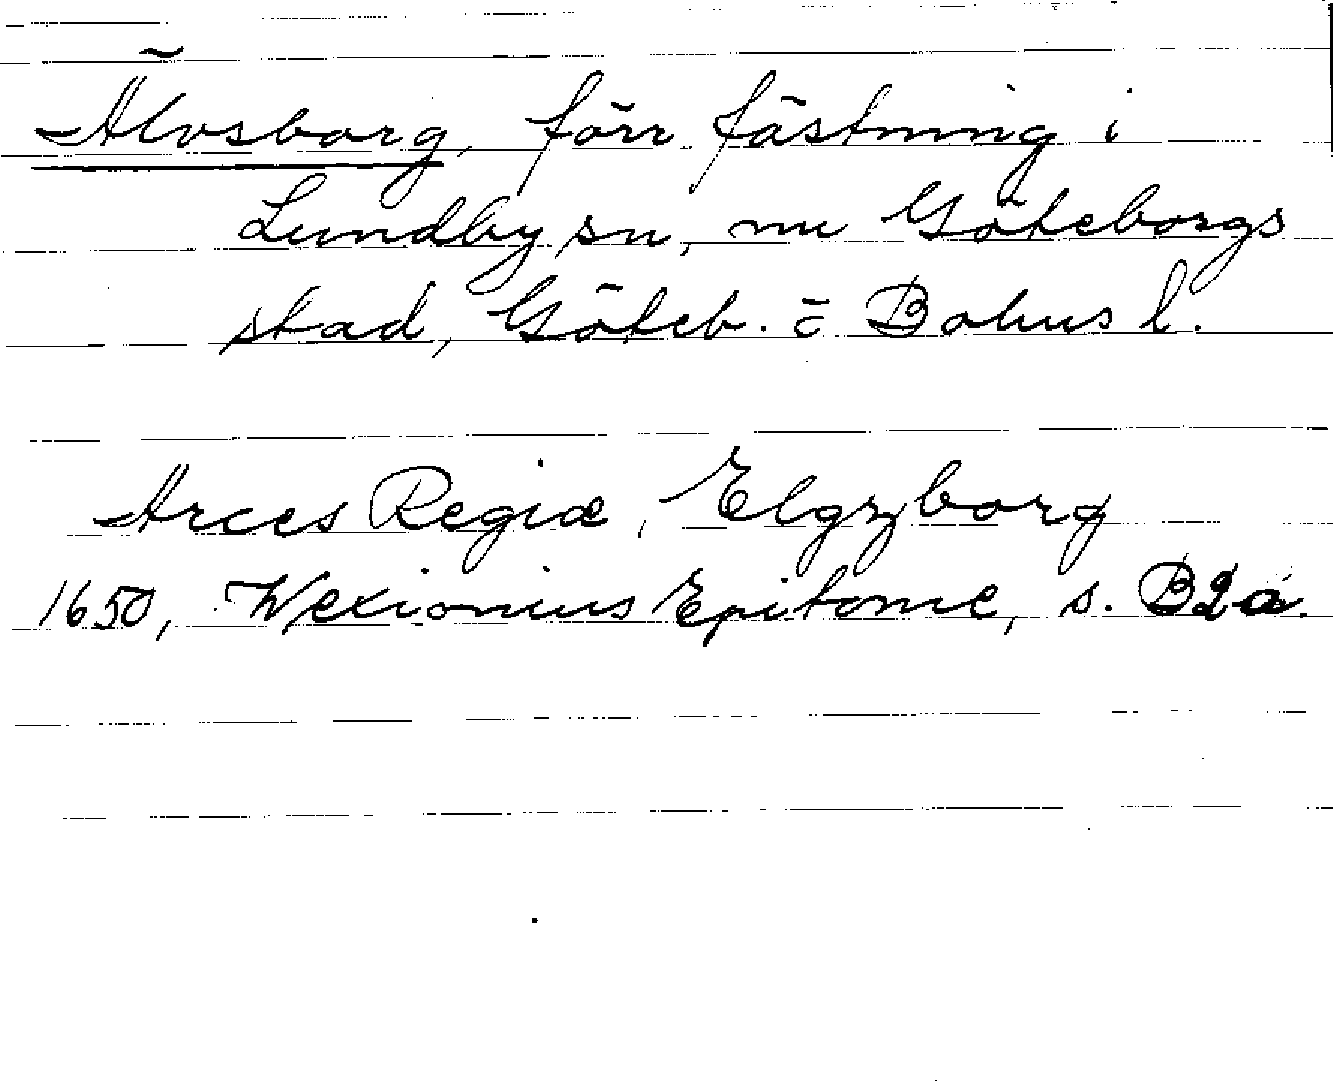 Älvsborg, förr fästning i
Lundby sn, nu Göteborgs
stad, Göteb. o Bohus l.
Arces Regiæ, Elgzborg
1650, Wexionius Epitome, s. B2a.